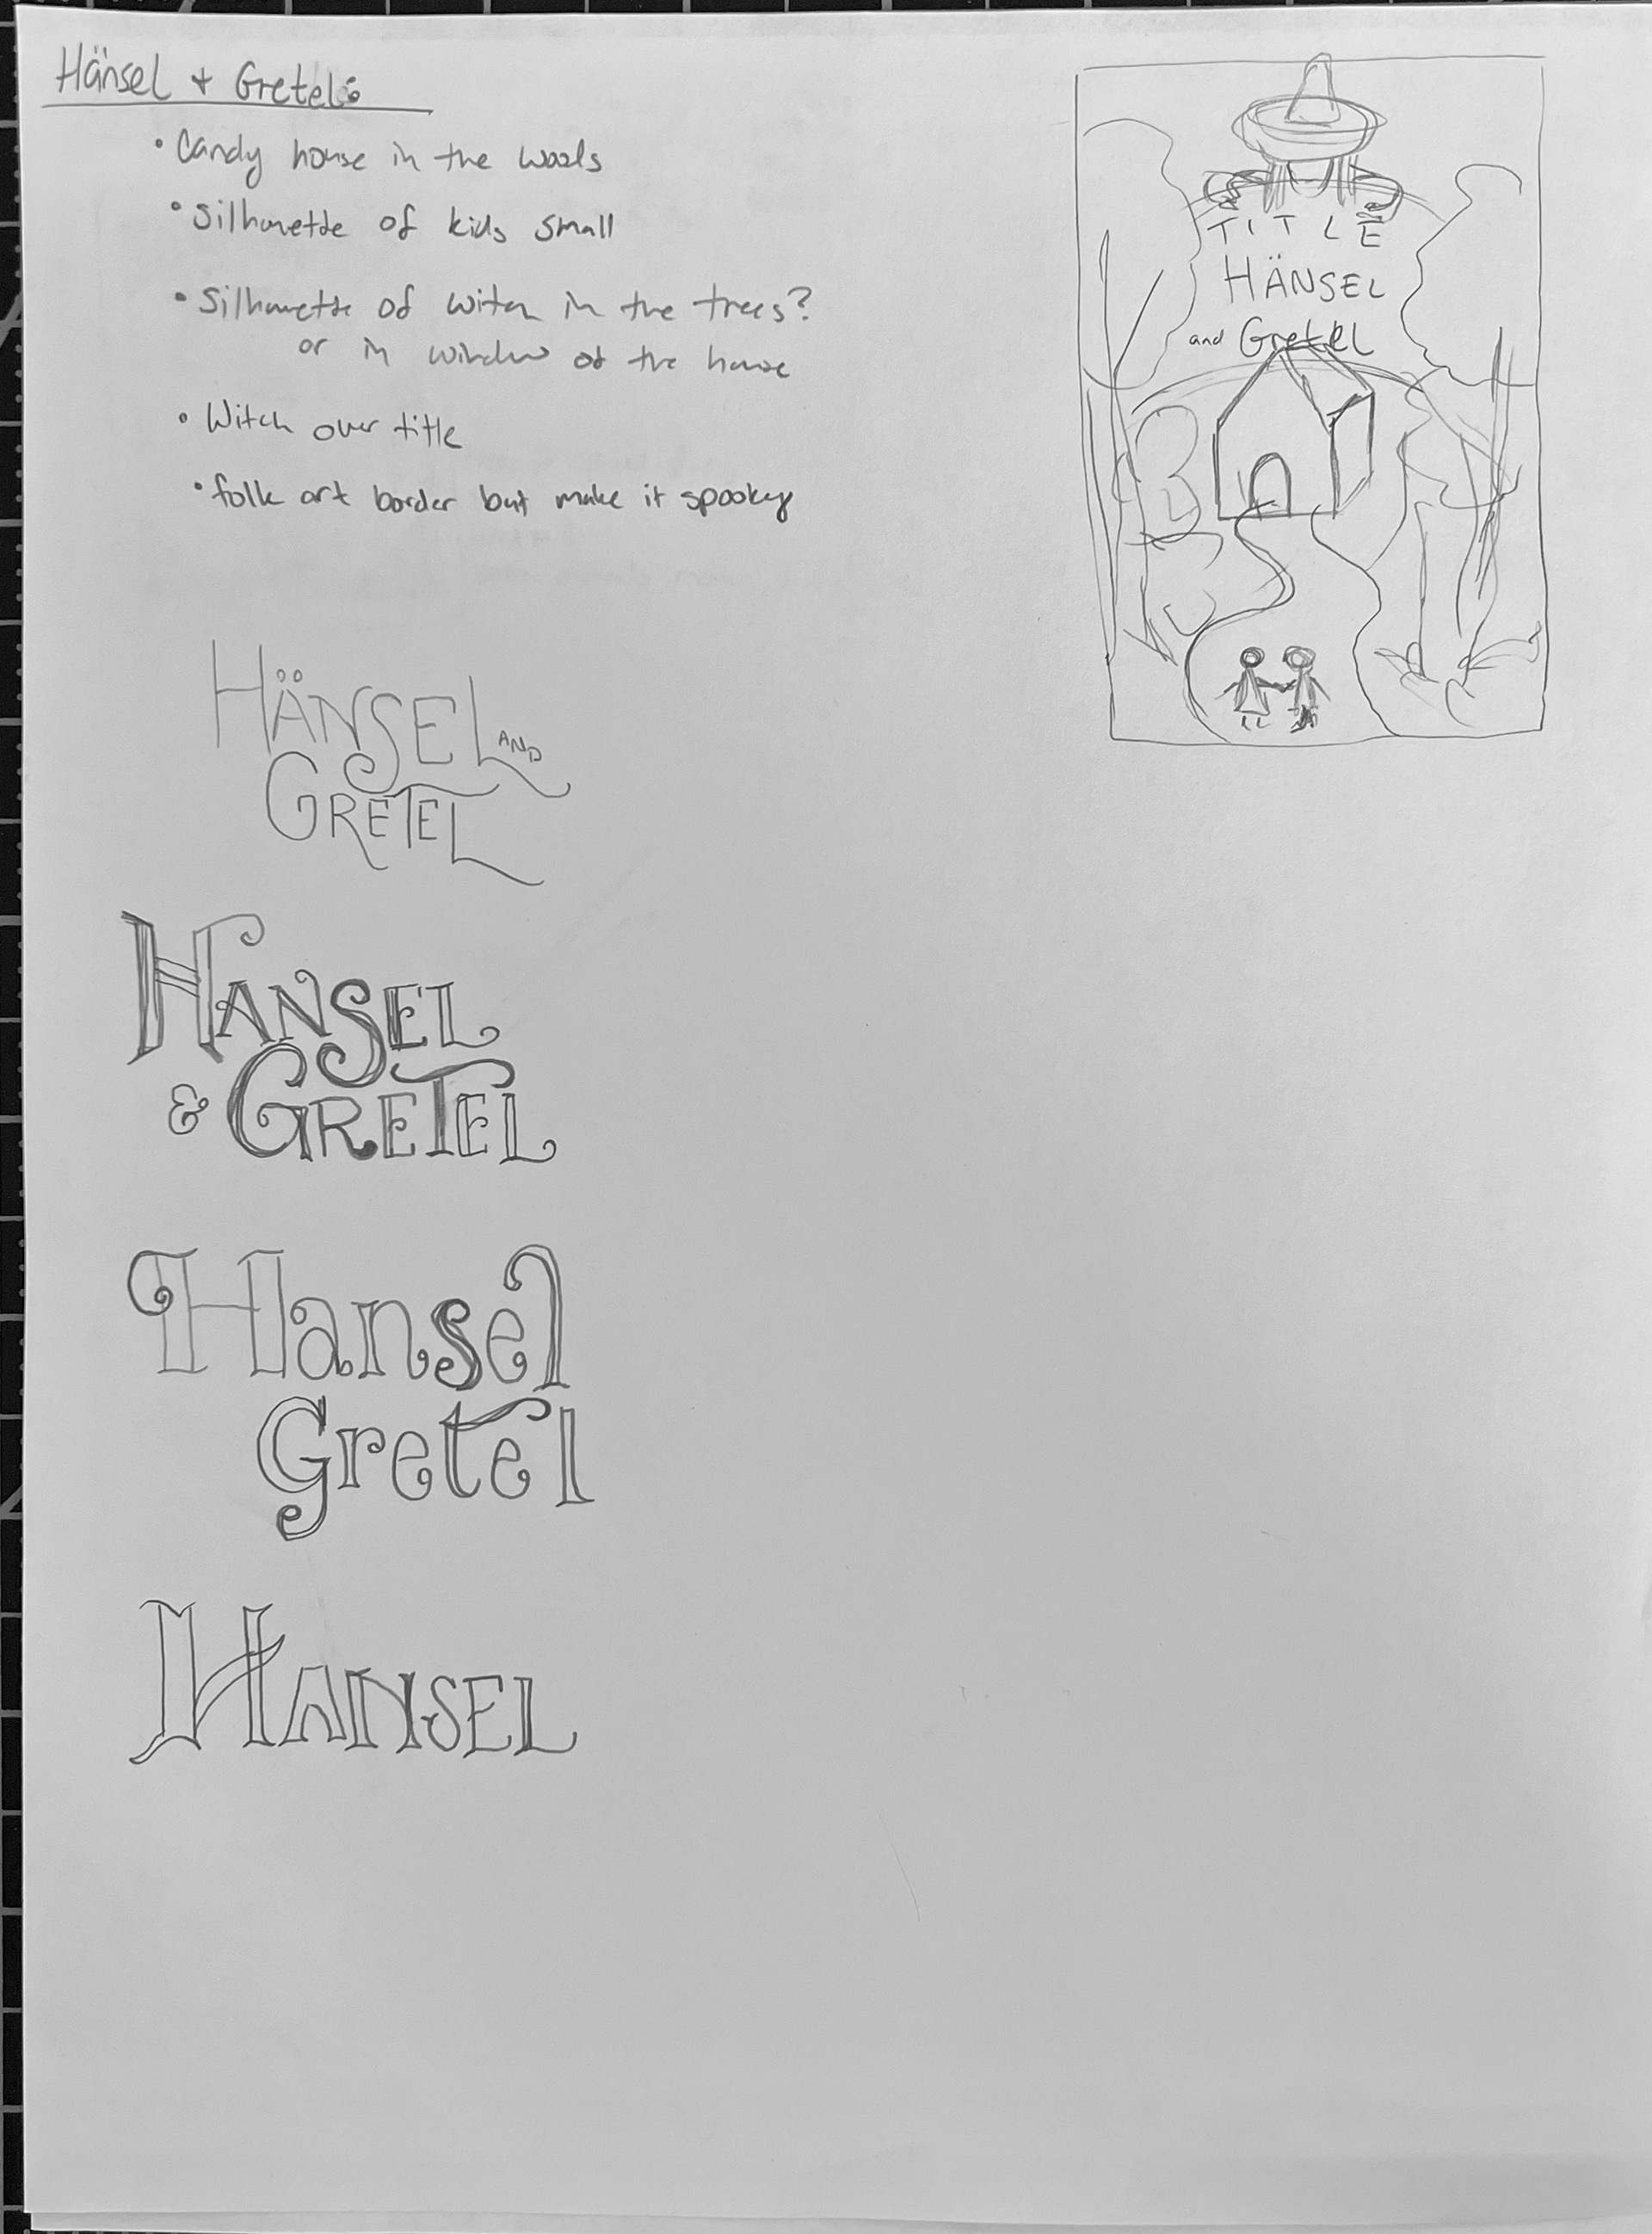 Hänsel + Gretel:
• Candy house in the woods
• Silhouette of kids small
• Silhouette of witch in the trees?
or in window of the house
• Witch over title
• folk art border but make it spooky
TITLE
HÄNSEL
and Gretel
HÄNSEL AND
GRETEL
HANSEL
& GRETEL
Hansel
Gretel
HANSEL